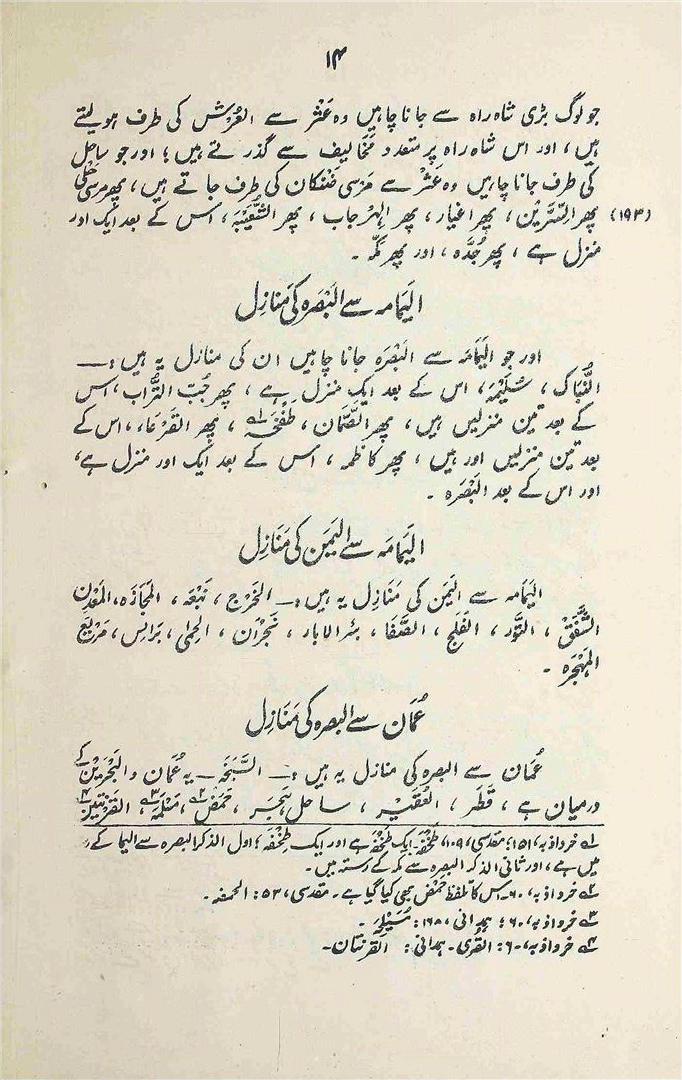 ۱۴
جو لوگ بڑی شاہ راہ سے جانا چاہیں وہ عَثْر سے العُرْش کی طرف ہو لیتے
ہیں، اور اس شاہ راہ پر متعدد مَخَالِیف سے گذرتے ہیں؛ اور جو ساحل
کی طرف جانا چاہیں وہ عَثْر سے مَرْسیٰ ضَنْکان کی طرف جاتے ہیں، پھر مرسیٰ حَلْی
(۱۹۳) پھر السِّرَّیْن، پھر اغیار، پھر الہِرْجاب، پھر الشُّعَیْبَہ، اس کے بعد ایک اور
منزل ہے، پھر جُدّہ، اور پھر مَکّہ۔
الیَمَامہ سے البَصْرَہ کی مَنَازِل
اور جو الیَمَامَہ سے البَصْرَہ جانا چاہیں ان کی منازل یہ ہیں:۔
النُّبَاک، سُلَیْمَہ، اس کے بعد ایک منزل ہے، پھر جُبّ التُّرَاب، اس
کے بعد تین منزلیں ہیں، پھر الصَّمَّان، طَخْفَہ ؎۱، پھر القَرْعَاء، اس کے
بعد تین منزلیں اور ہیں، پھر کاظمہ، اس کے بعد ایک اور منزل ہے،
اور اس کے بعد البَصْرَہ۔
الیَمَامَہ سے الیَمَن کی مَنَازِل
الیَمَامہ سے الیَمَن کی مَنَازِل یہ ہیں:۔ الخَرْج، نَبْعَہ، المَجَازَہ، المَعْدِن
الشَّفَقْ، الثَّوْر، الفَلَج، الصَّفَا، بئر الآبار، نَجْرَان، الحِمٰی، بَرَانِس، مَرْیَع
المَہْجَرہ۔
عُمَان سے البصرہ کی مَنَازِل
عُمَان سے البصرہ کی منازل یہ ہیں:۔ السَّبَخَہ۔ یہ عُمَان و البَحْرَیْن کے
درمیان ہے، قَطَر، العُقَیْر، ساحل ہَجَر، حَمَض ؎۲، مُسْلِحَہ ؎۳، القَرْنَتَیْن ؎۴
؎۱ خرداذبہ، ۱۵۱؛ مقدسی، ۱۰۹، طَخْفَہ۔ ایک طَخْفَہ ہے اور ایک طِخْفَہ؛ اول الذکر البصرہ سے الیمامہ کے رستہ
میں ہے، اور ثانی الذکر البصرہ سے مکہ کے رستہ میں۔
؎۲ خرداذبہ، ۶۰۔ اس کا تلفظ حَمْض بھی کیا گیا ہے۔ مقدسی، ۵۳: الحمضہ۔
؎۳ خرداذبہ، ۶۰؛ ہمدانی، ۱۶۸: مُسَیْلِحَہ۔
؎۴ خرداذبہ، ۶۰: القُرٰی۔ ہمدانی: القرنتان۔